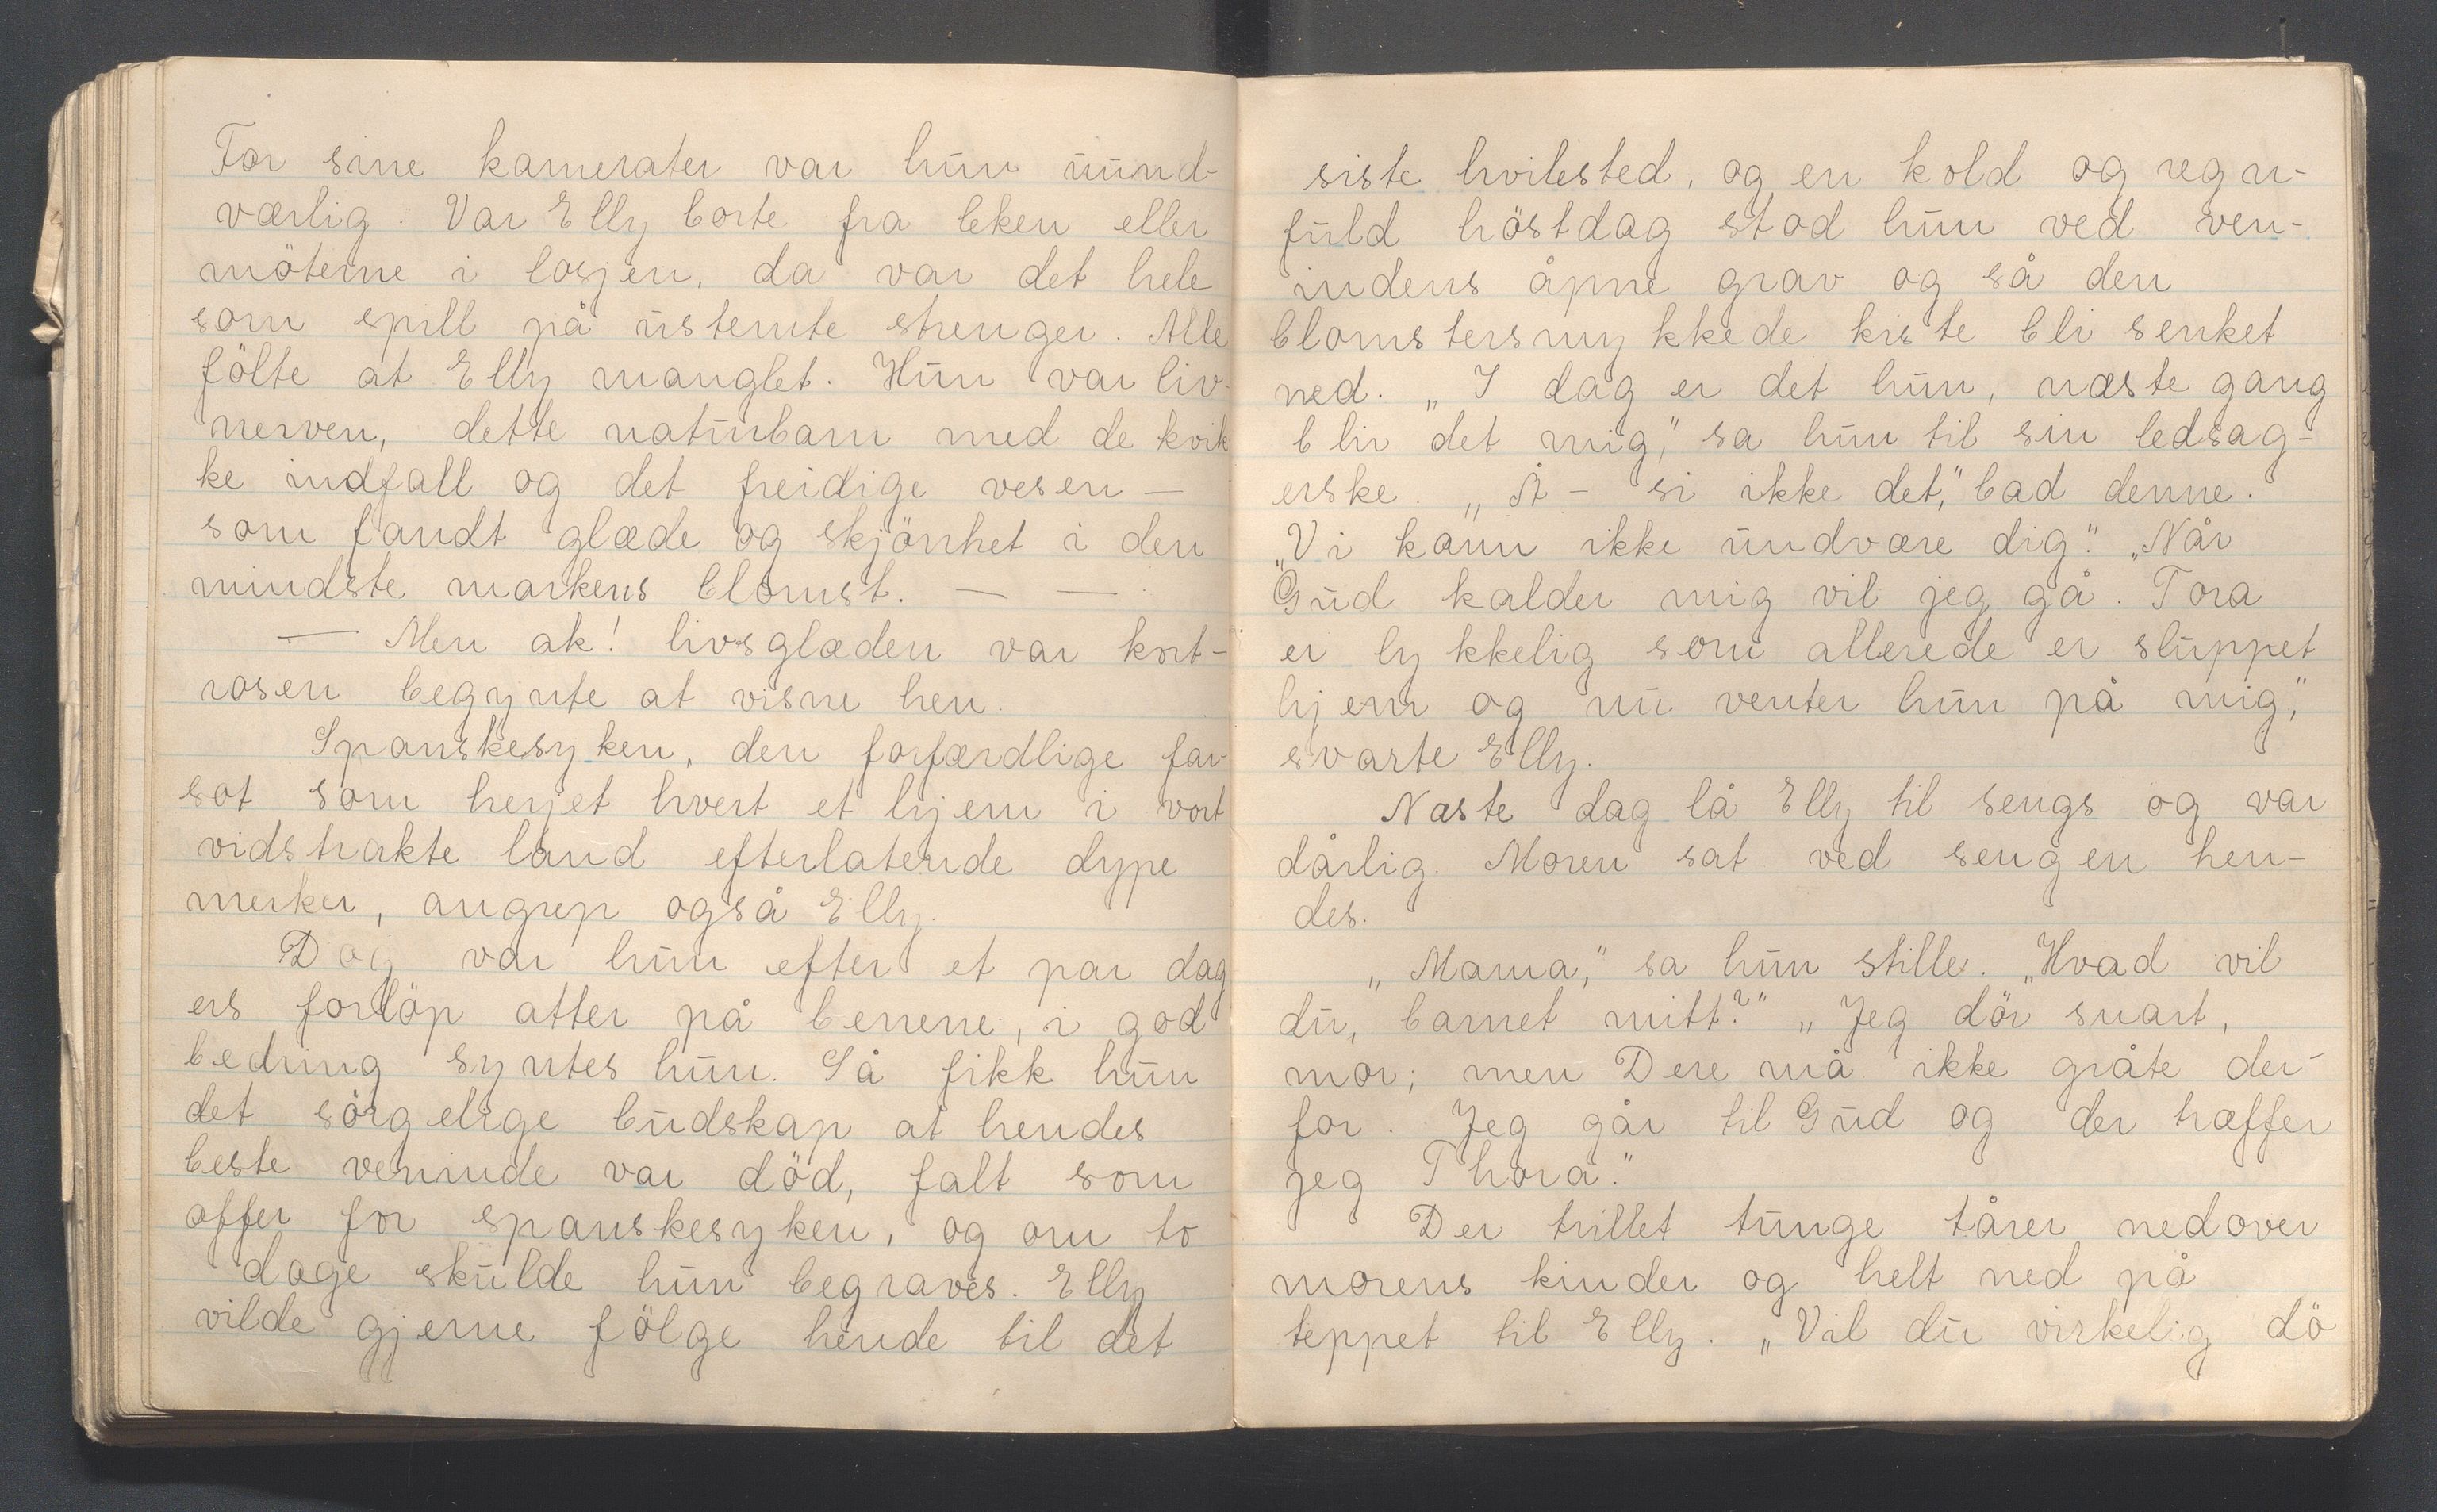 For sine kamerater var hun uund-
værlig. Var Elly borte fra leken eller
möterne i losjen, da var det hele
som spill på ustemte strenger. Alle
fölte at Elly manglet. Hun var liv-
nerven, dette naturbarn med de kvik
ke indfall og det freidige vesen —
som fandt glæde og skjönhet i den
mindste markens blomst. — —
— Men ak! livsglæden var kort-
rosen begynte at visne hen.
Spanskesyken, den forfærdlige far-
sot som herjet hvert et hjem i vort
vidstrakte land efterlatende dype
merker, angrep også Elly.
Dog var hun efter et par dag
ers forlöp atter på benene, i god
bedring syntes hun. Så fikk hun
det sörgelige budskap at hendes
beste veninde var död, falt som
offer for spanskesyken, og om to
dage skulde hun begraves. Elly
vilde gjerne fölge hende til det
siste hvilested, og en kold og regn-
fuld höstdag stod hun ved ven-
indens åpne grav og så den
blomstersmykkede kiste bli senket
ned. „I dag er det hun, næste gang
blir det mig," sa hun til sin ledsag-
erske. „Å - si ikke det," bad denne.
„Vi kann ikke undvære dig". „Når
Gud kalder mig vil jeg gå. Tora
er lykkelig som allerede er sluppet
hjem og nu venter hun på mig,"
svarte Elly.
Næste dag lå Elly til sengs og var
dårlig. Moren sat ved sengen hen-
des.
„Mama," sa hun stille. „Hvad vil
du, barnet mitt?" „Jeg dör snart,
mor; men Dere må ikke gråte der-
for. Jeg går til Gud og der hæffer
jeg Thora."
Der trillet tunge tårer nedover
morens kinder og helt ned på
teppet til Elly. „Vil du virkelig dö